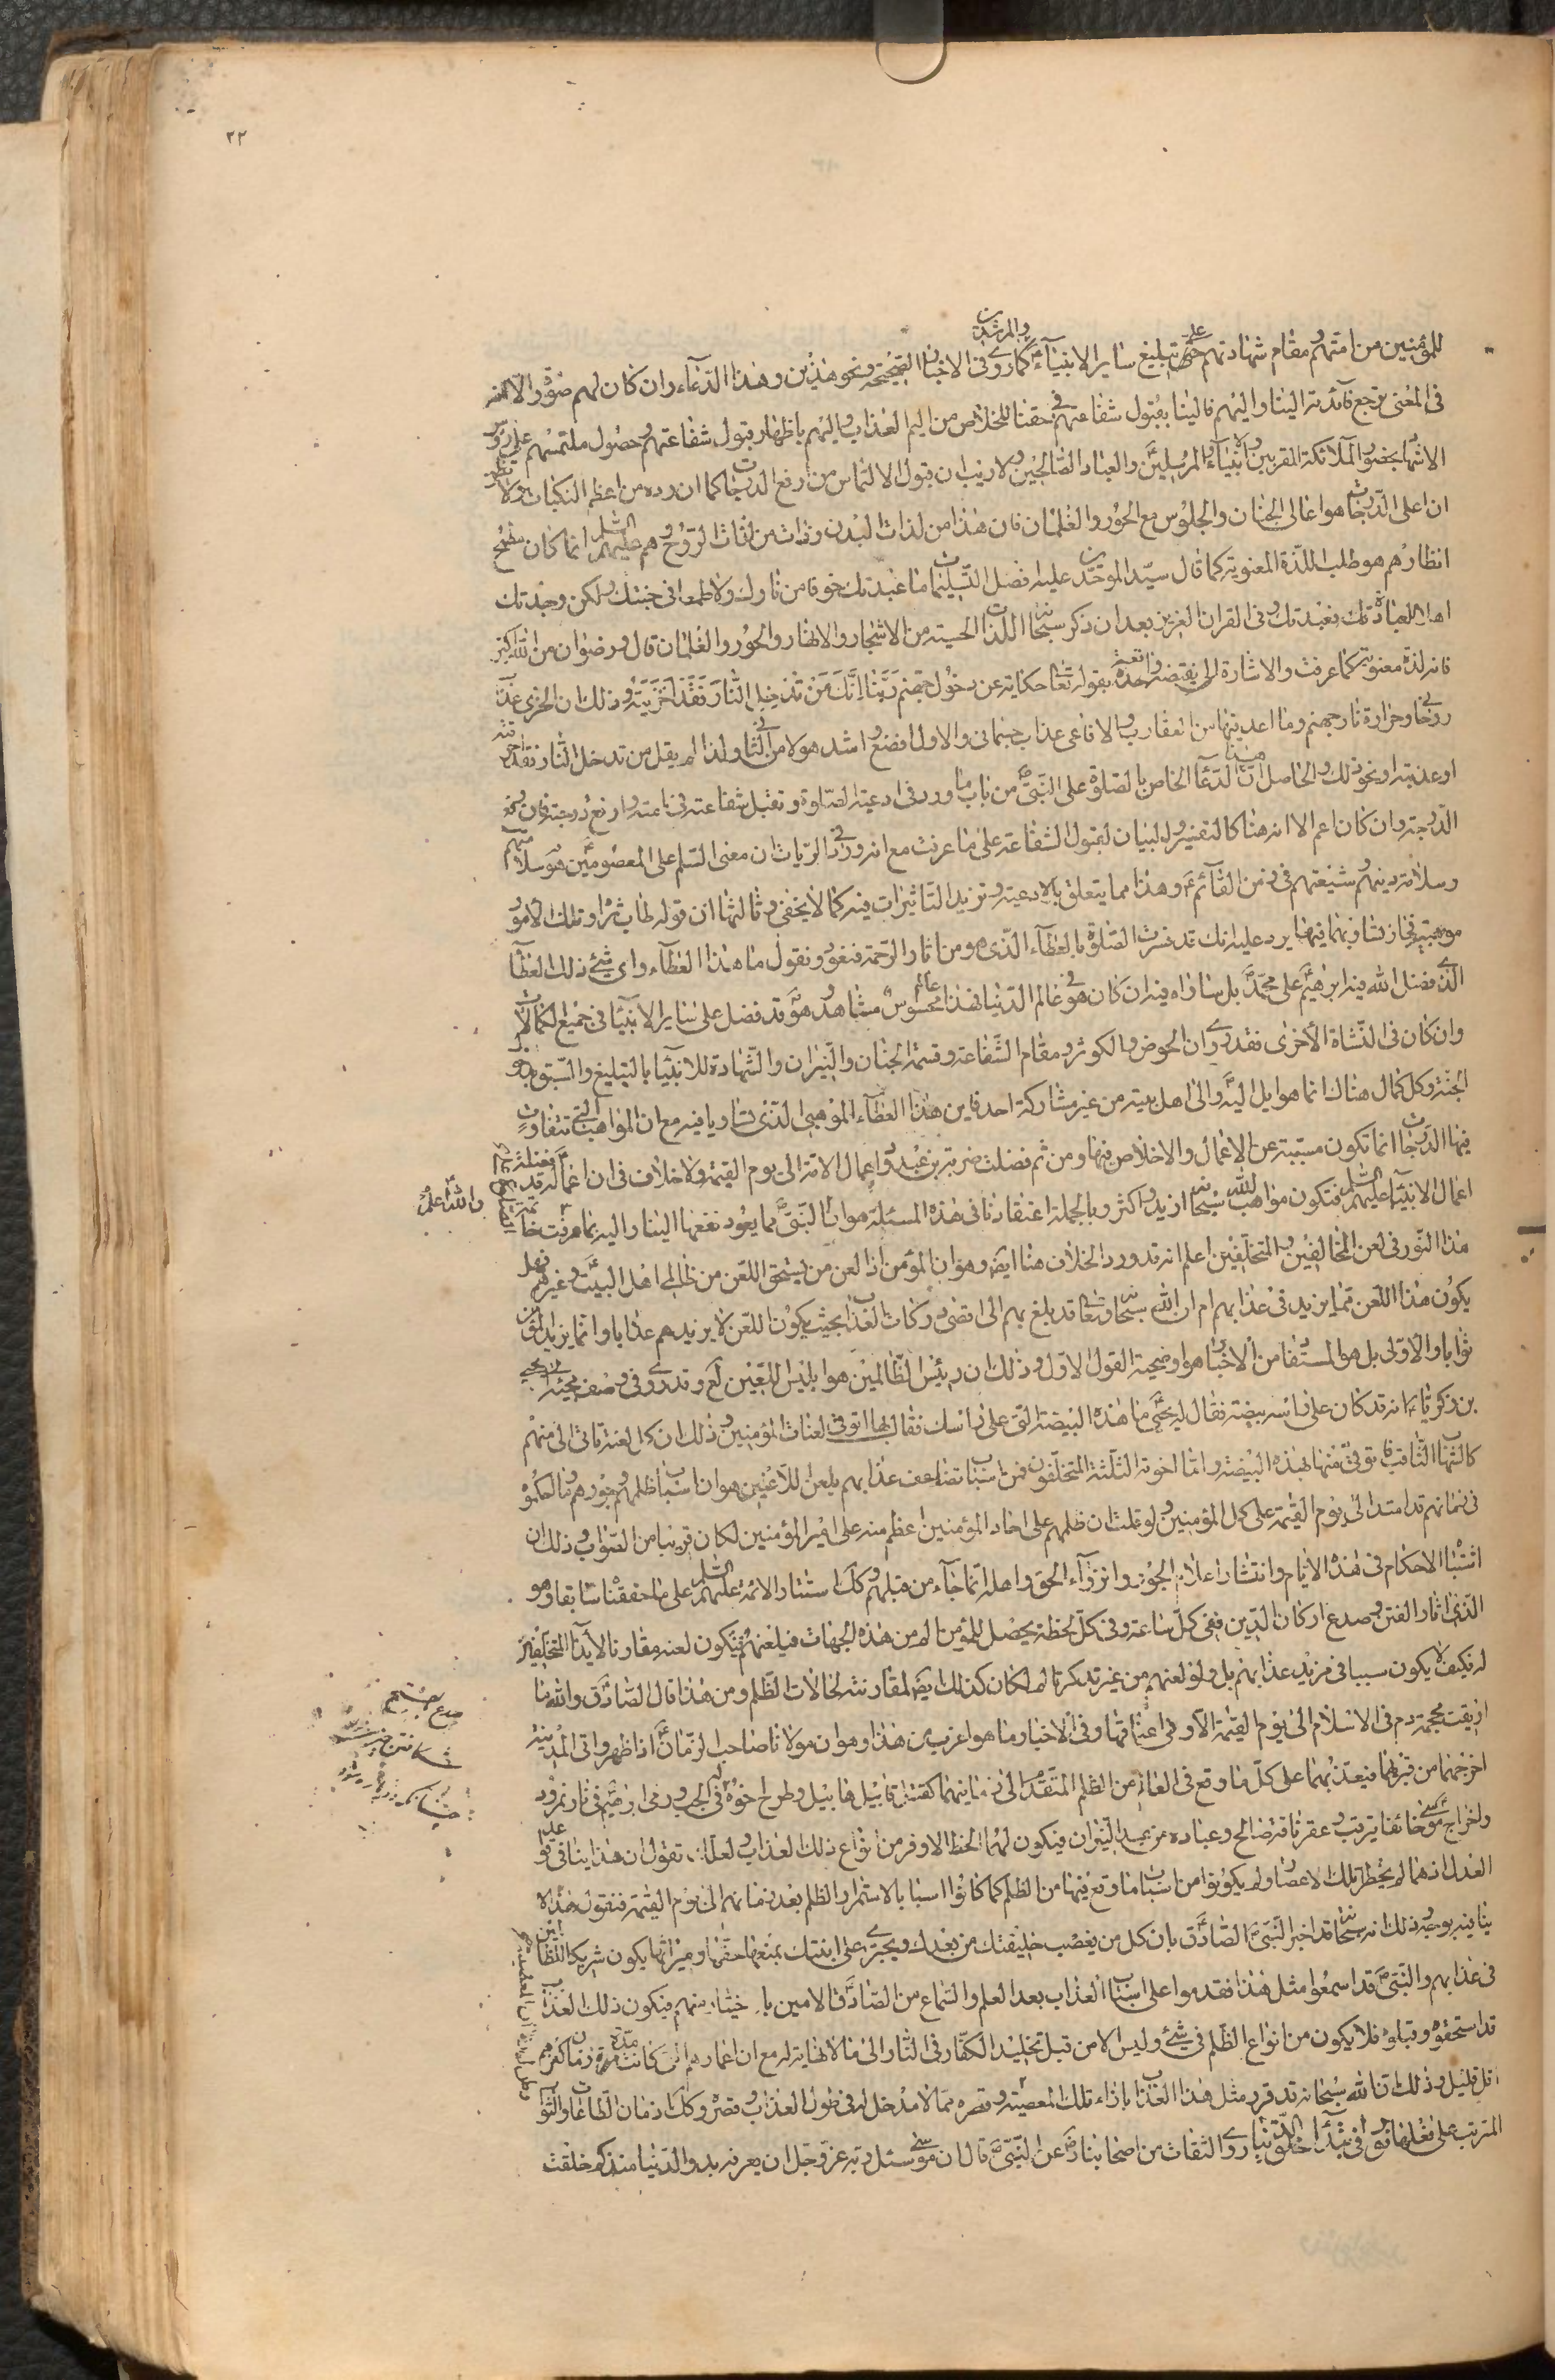 ٢٢
للمؤمنين من امتهم ومقام شهادتهم على تبليغ ساير الانبياء والمرشدين كما روى فى الاخبار الصحيحة ونحو هذين وهذا الدعاء وان كان لهم صورة الا انه
فى المعنى يرجع فائدته الينا واليهم فالينا بقبول شفاعتهم فى حقنا للخلاص من اليم العذاب واليهم باظهار قبول شفاعتهم وحصول ملتمسهم على رؤس
الاشهاد بحضور الملائكة المقربين والانبياء والمرسلين والعباد الصالحين ولا ريب ان قبول الالتماس من ارفع الدرجات كما ان رده من اعظم النكبات ولا تظن
ان اعلى الدرجات هو اعالى الجنان والجلوس مع الحور والغلمان فان هذا من لذات البدن وذات من لذات الروح وهم عليهم السلم انما كان مطمح
انظارهم هو طلب اللذة المعنوية كما قال سيد الموحدين عليه افضل التسليمات ما عبدتك خوفا من نارك ولا طمعا فى جنتك ولكن وجدتك
اهلا للعبادة فعبدتك وفى القران العزيز بعد ان ذكر سبحانه اللذات الحسية من الاشجار والانهار والحور والغلمان قال ورضوان من الله اكبر
فانه لذة معنوية كما عرفت والاشارة الى نقيضه واقعة بقوله تعالى حكاية عن دخول جهنم ربنا انك من تدخل النار فقد اخزيته وذلك ان الخزى عذاب
روحانى وحرارة نار جهنم وما اعد فيها من العقارب والافاعى عذاب جسمانى والاول افضع واشد هولا من الثانى ولذا لم يقل من تدخل النار فقد احرقته
او عذبته او نحو ذلك والحاصل ان هذا الدعاء الخاص بالصلوة على النبى ص من باب ما ورد فى ادعية الصلوة وتقبل شفاعته فى امته وارفع درجته فان رفع
الدرجة وان كان اعم الا انه هنا كالتفسير والبيان لقبول الشفاعة على ما عرفت مع انه ورد فى الروايات ان معنى السلم على المعصومين هو سلامتهم
وسلامة دينهم وشيعتهم فى زمن القائم ع وهذا مما يتعلق بالادعية وتزيد التاثيرات فيه كما لا يخفى وثالثها ان قوله طاب ثراه وتلك الامور
موهبية فجاز تساويهما فيها يرد عليه انك قد فسرت الصلوة بالعطاء الذى هو من اثار الرحمة فنعود ونقول ما هذا العطاء واى شئ ذلك العطاء
الذى فضل الله فيه ابرهيم على محمد ص بل ساواه فيه ان كان هو فى عالم الدنيا فهذا عالم محسوس مشاهد وهو ص قد فضل على ساير الانبياء فى جميع الكمالات
وان كان فى النشاة الاخرى فقد روى ان الحوض والكوثر ومقام الشفاعة وقسمة الجنان والنيران والشهادة للانبياء بالتبليغ والسبق بدخول
الجنة وكل كمال هناك انما هو ايل اليه ص والى اهل بيته من غير مشاركة احد فاين هذا العطاء الموهبى الذى تساويا فيه مع ان المواهب التى تتفاوت
فيها الدرجات انما تكون مسببة عن الاعمال والاخلاص فيها ومن ثم فضلت ضربة بن عبد ود اعمال الامة الى يوم القيمة ولا خلاف فى ان اعماله ص قد فضلت
اعمال الانبياء عليهم السلم فتكون مواهب الله سبحانه ازيد واكثر وبالجملة اعتقادنا فى هذه المسئلة هو ان النبى ص مما يعود نفعها الينا واليه بما عرفت والله اعلم
هذا النور فى لعن المخالفين والمتخلفين اعلم انه قد ورد الخلاف هنا ايضه وهو ان المؤمن اذا لعن من يستحق اللعن من ظالمى اهل البيت ع وغيرهم فهل
يكون هذا اللعن مما يزيد فى عذابهم ام ان الله سبحانه وتعالى قد بلغ بهم الى اقصى دركات العذاب بحيث يكون اللعن لا يزيدهم عذابا وانما يزيد اللاعن
ثوابا والاولى بل هو المستفاد من الاخبار هو اوضحية القول الاول وذلك ان رئيس الظالمين هو ابليس اللعين لع وقد روى فى وصف مجيئه الى يحيى
بن زكريا ع انه قد كان على راسه بيضة فقال له يحيى ما هذه البيضة التى على راسك فقال بها اتوقى لعنات المؤمنين وذلك ان كل لعنة تاتى الى منهم
كالشهاب الثاقب فاتوقى منها بهذه البيضة واما اخوته الثلثة المتخلفون فمن اسباب تضاعف عذابهم بلعن اللاعنين هو ان اسباب ظلمهم وجورهم وما حكموا
فى زمانهم قد امتد الى يوم القيمة على كل المؤمنين ولو قلت ان ظلمهم على احاد المؤمنين اعظم منه على امير المؤمنين لكان قريبا من الصواب وذلك ان
اشتباه الاحكام فى هذه الايام وانتشار اعلام الجور وانزواء الحق واهله انما جاء من قبلهم وكك استتار الائمة عليهم السلم على ما حققناه سابقا وهو
الذى اثار الفتن وصدع اركان الدين ففى كل ساعة وفى كل لحظة يحصل للمؤمن الم من هذه الجهات فيلعنهم فيكون لعنه مقارنا لايذاء المتخلفين
له فكيف لا يكون سببا فى مزيد عذابهم بل ولو لعنهم من غير تذكر تالم لكان كذلك ايض لمقارنته لحالات الظلم ومن هذا قال الصادق ع والله ما
اريقت محجمة دم فى الاسلام الى يوم القيمة الا وهى فى اعناقهما وفى الاخبار ما هو اغرب من هذا وهو ان مولانا صاحب الزمان ع اذا ظهر واتى المدينة
اخرجهما من قبريهما فيعذبهما على كل ما وقع فى العالم من الظلم المتقدم الى زمانهما كقتل قابيل هابيل وطرح اخوة يوسف له فى الجب ورمى ابرهيم فى نار نمرود
واخراج موسى خائفا يترقب وعقر ناقة صالح وعباده من عبد النيران فيكون لهما الحظ الاوفر من انواع ذلك العذاب ولعلك تقول ان هذا ينافى قواعد
العدل اذ هما لم يحضرا تلك الاعصار ولم يكونوا من اسباب ما وقع فيها من الظلم كما كانوا اسبابا لاستمرار الظلم بعد زمانهم الى يوم القيمة فنقول هذا لا
ينافيه بوجه وذلك انه سبحانه قد اخبر النبى ص الصادق بان كل من يغصب خليفتك من بعدك ويجترى على ابنتك بمنعها حقها وميراثها يكون شريكا للظالمين
فى عذابهم والنبى ص قد اسمعوا مثل هذا فقدموا على اسباب العذاب بعد العلم والسماع من الصادق الامين باختيار منهم فيكون ذلك العذاب
قد استحقوه وقبلوه فلا يكون من انواع الظلم فى شئ وليس الا من قبل تخليد الكفار فى النار الى ما لا نهاية له مع ان اعمارهم التى كانت مدة زمان كفرهم
اقل قليل وذلك ان الله سبحانه قد قرر مثل هذا العذاب بازاء تلك المعصية وقصره مما لا مدخل له فى طول العذاب وقصره وكك ازمان الطاعات والثواب
المترتب على فعلها نور فى مبتدأ خلق الدنيا روى الثقات من اصحابنا رض عن النبى ص قال ان موسى سئل ربه عز وجل ان يعرفه بدو الدنيا منذ كم خلقت